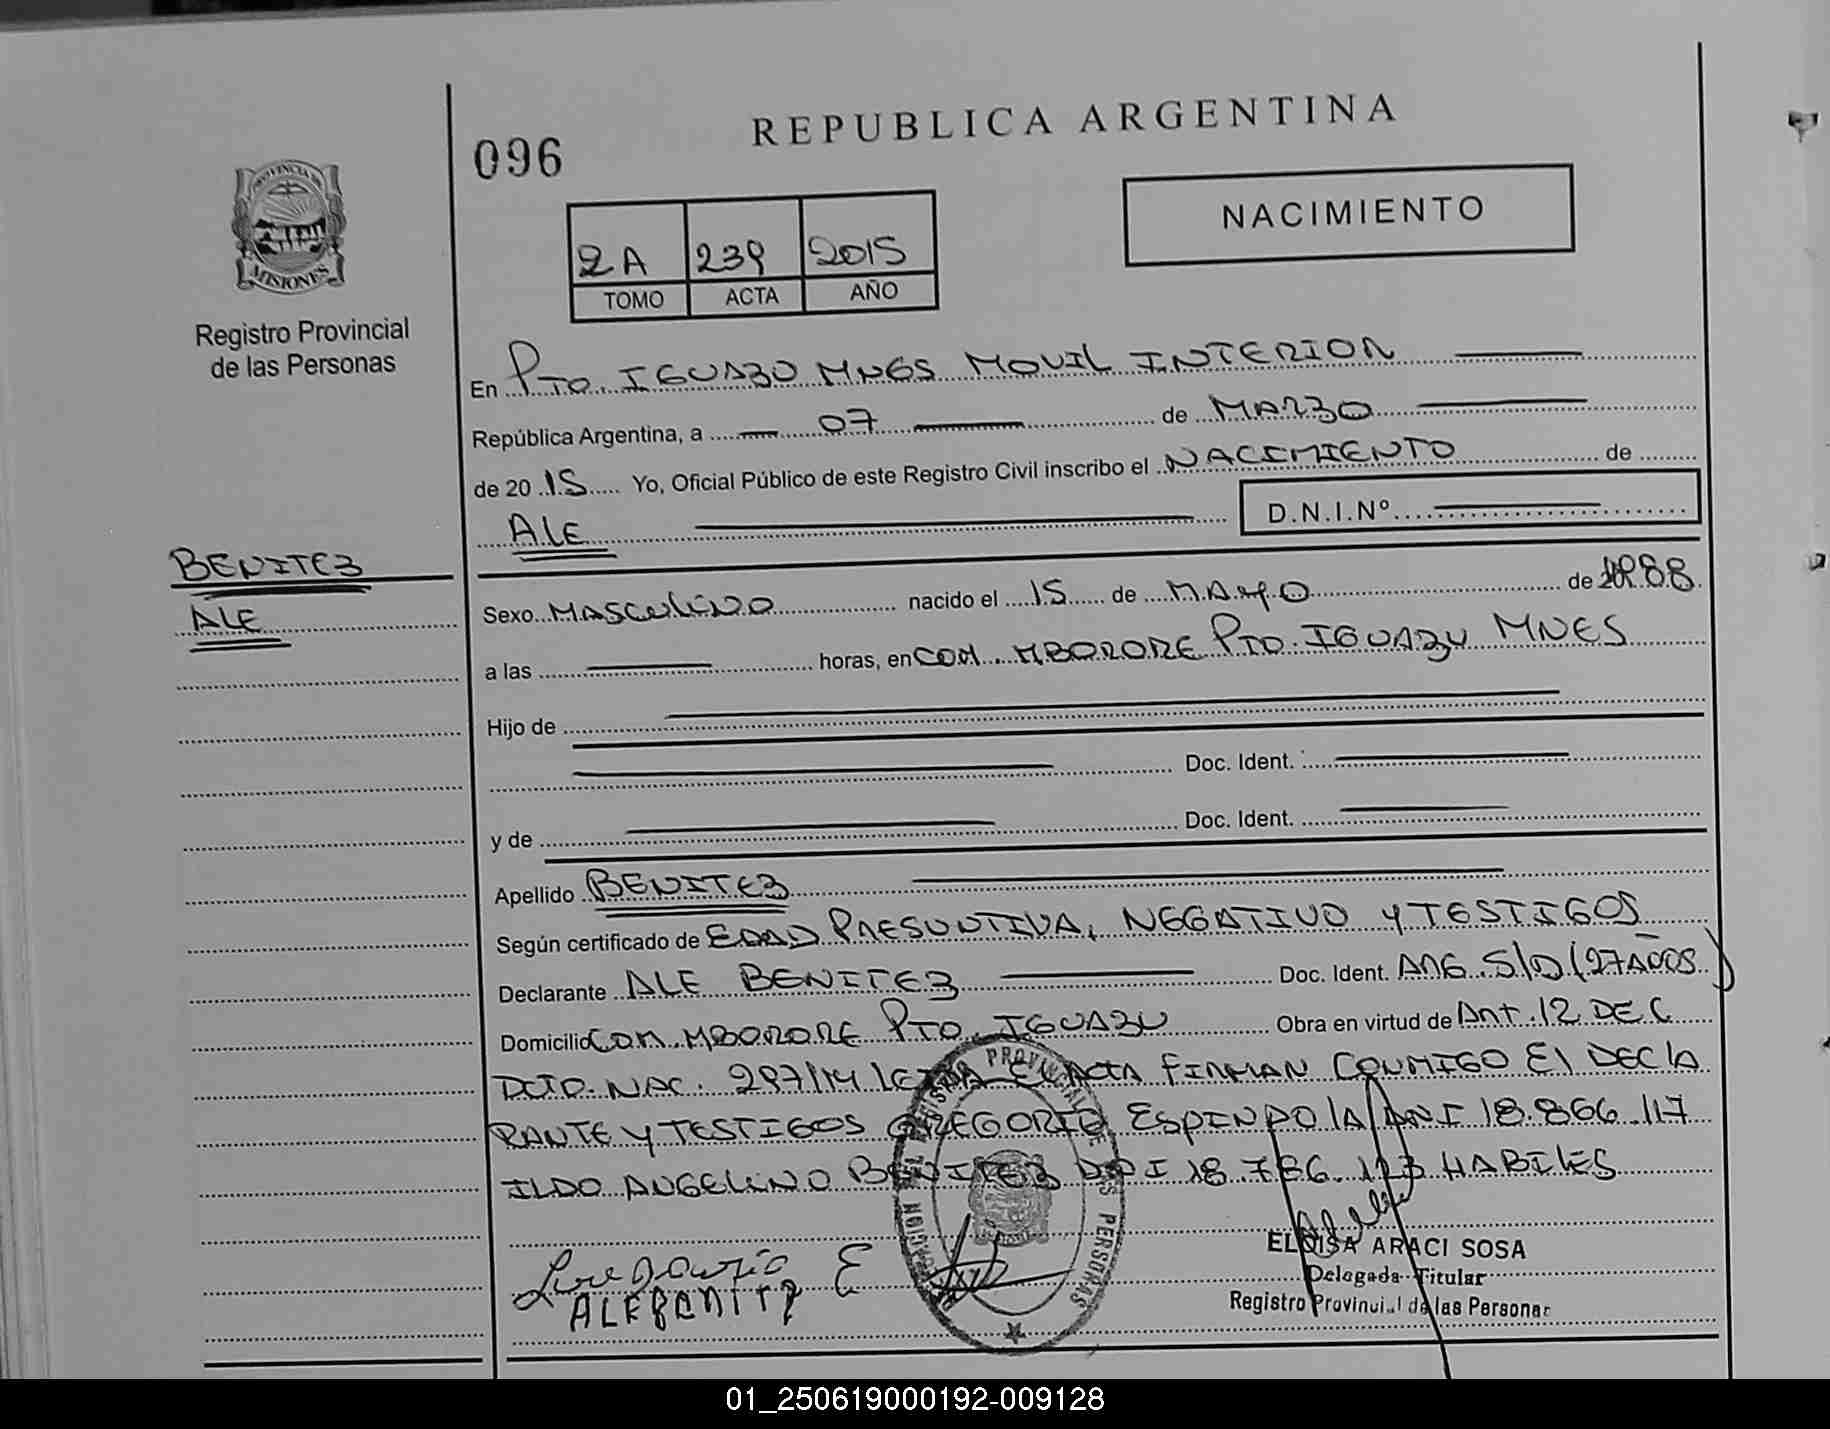 REPUBLICA ARGENTINA
096
NACIMIENTO
2A 239 2015
TOMO ACTA AÑO
PROVINCIA DE
MISIONES
Registro Provincial
de las Personas
En Pto. IGUAZU MNES MOVIL INTERIOR
República Argentina, a 07 de MARZO
de 20 15 Yo, Oficial Público de este Registro Civil inscribo el NACIMIENTO de
ALE D.N.I.Nº
BENITEZ
ALE
Sexo MASCULINO nacido el 15 de MAYO de 1988
a las horas, en COM. MBORORE PTO. IGUAZU MNES
Hijo de
Doc. Ident.
y de Doc. Ident.
Apellido BENITEZ
Según certificado de EDAD PRESUNTIVA, NEGATIVO Y TESTIGOS
Declarante ALE BENITEZ Doc. Ident. ARG S/D (27 AÑOS)
Domicilio COM. MBORORE PTO. IGUAZU Obra en virtud de Art. 12 DEC
DCTO. NAC. 297/14 LEIDA EL ACTA FIRMAN CONMIGO EL DECLA
RANTE Y TESTIGOS GREGORIO ESPINDOLA DNI 18.866.117
ILDO ANGELINO BENITEZ DNI 18.786.123 HABILES
PROVINCIAL DE LAS PERSONAS
ALE BENITEZ
ELOISA ARACI SOSA
Delegada Titular
Registro Provincial de las Personas
01_250619000192-009128